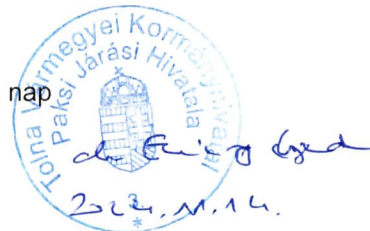 Tolna Vármegyei Kormányhivatal
Paksi Járási Hivatala
nap
3.
2024. 11. 14.